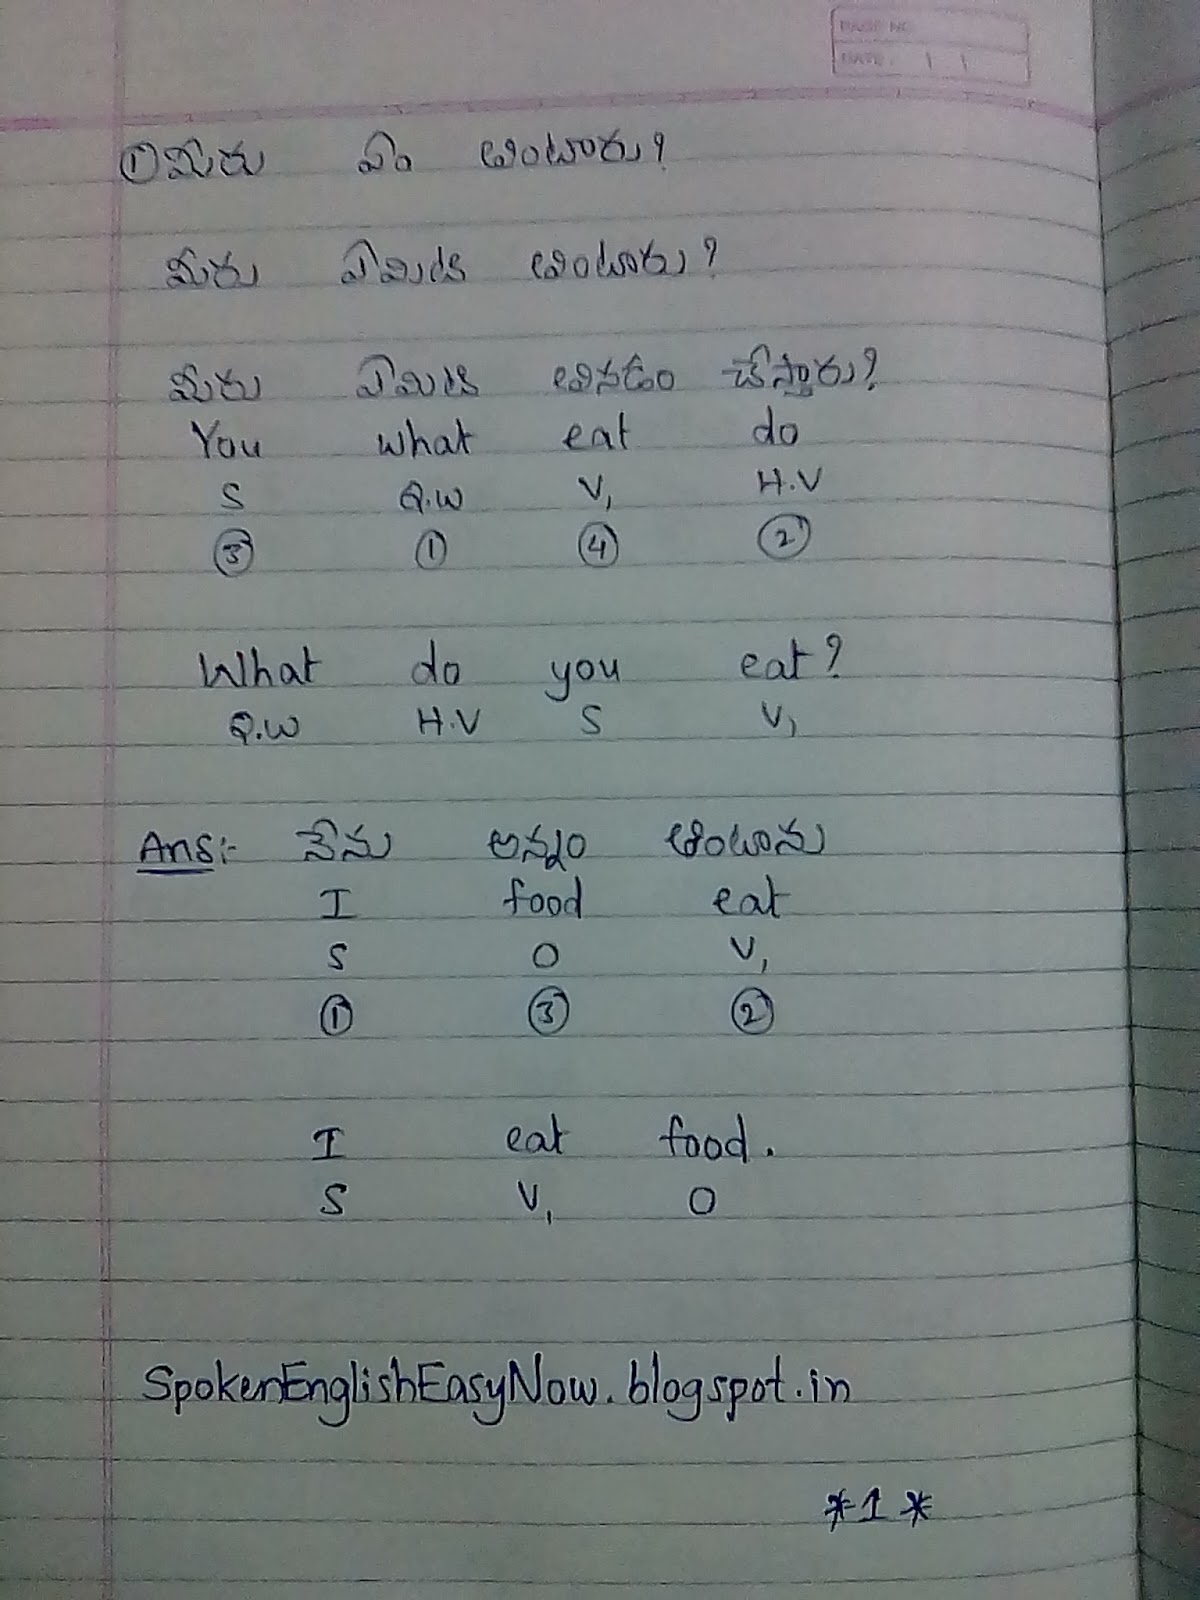 PAGE NO.
DATE: / /
① మీరు ఏం తింటారు?
మీరు ఏమిటి తింటారు?
మీరు ఏమిటి తినడం చేస్తారు?
You what eat do
S Q.W V₁ H.V
③ ① ④ ②
What do you eat?
Q.W H.V S V₁
Ans:- నేను అన్నం తింటాను
I food eat
S O V₁
① ③ ②
I eat food.
S V₁ O
SpokenEnglishEasyNow.blogspot.in
*1*